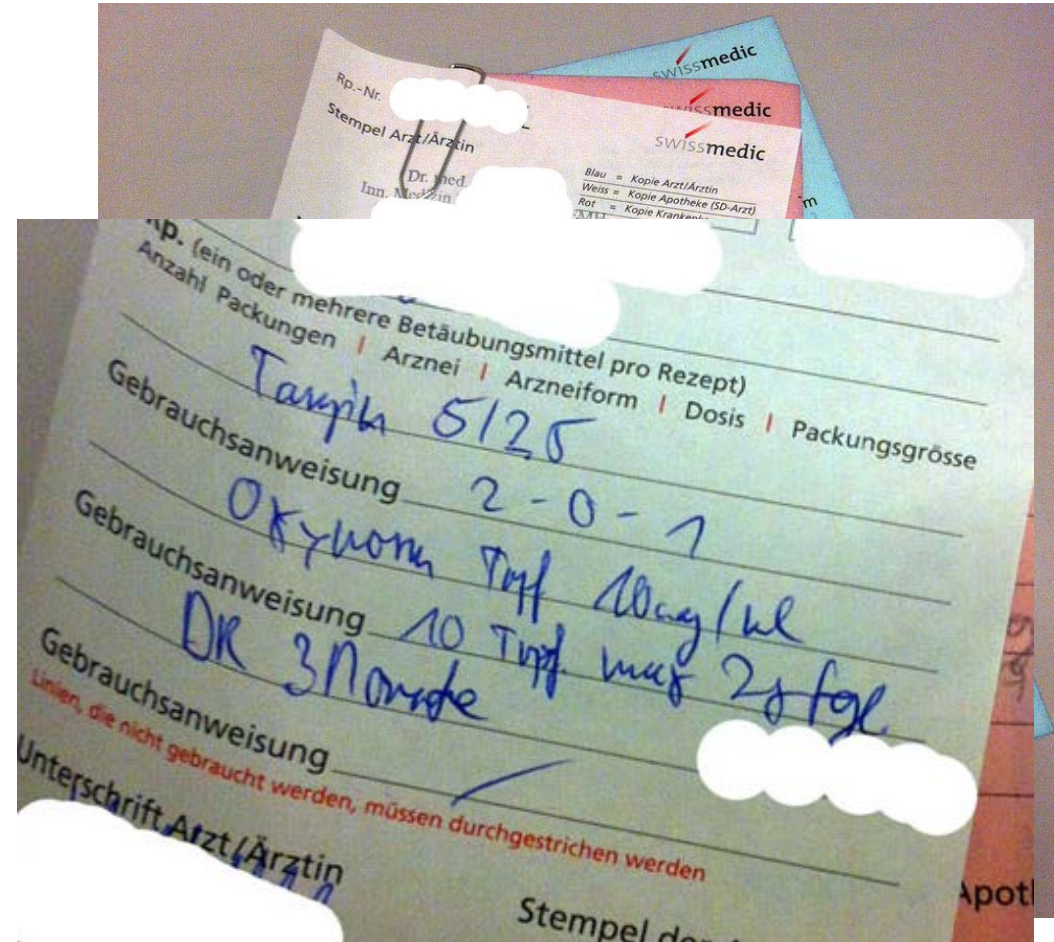 swissmedic
swissmedic
swissmedic
Rp.-Nr.
Stempel Arzt/Ärztin
Dr. med.
Inn. Medizin
Blau = Kopie Arzt/Ärztin
Weiss = Kopie Apotheke (SD-Arzt)
Rot = Kopie
Rp. (ein oder mehrere Betäubungsmittel pro Rezept)
Anzahl Packungen | Arznei | Arzneiform | Dosis | Packungsgrösse
Targin 5/25
Gebrauchsanweisung 2-0-1
Oxynorm Tropf 10mg/ml
Gebrauchsanweisung 10 Tropf. max 2x tgl
DR 3 Monate
Gebrauchsanweisung
Linien, die nicht gebraucht werden, müssen durchgestrichen werden
Unterschrift Arzt/Ärztin
Stempel